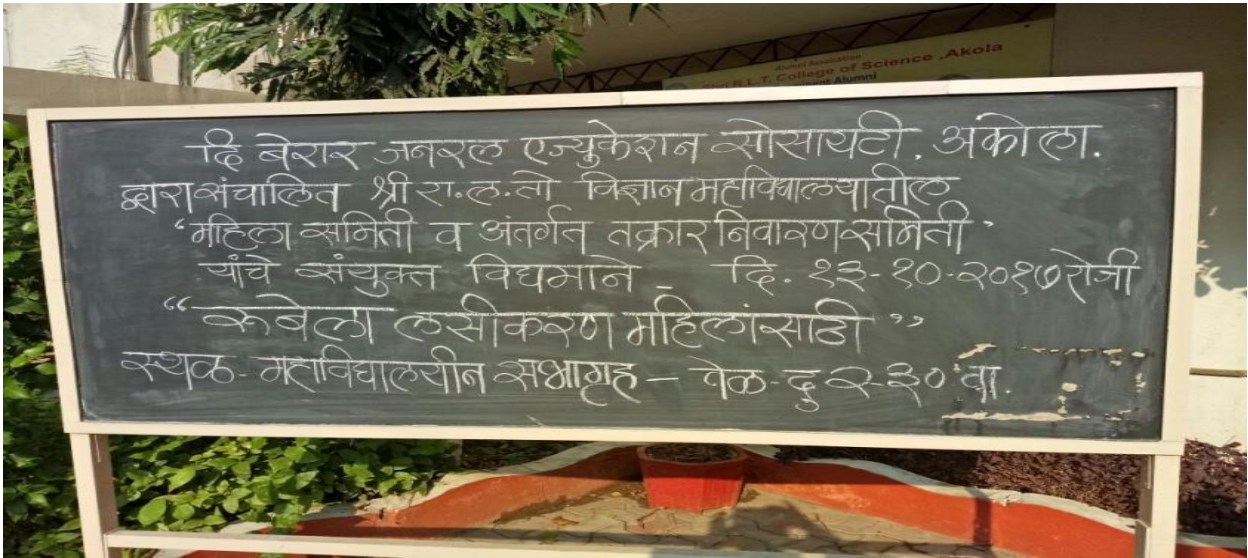 Alumni Association
Shri R.L.T. College of Science ,Akola
Alumni
दि बेरार जनरल एज्युकेशन सोसायटी. अकोला.
द्वारा संचालित श्री रा.ल.तो विज्ञान महाविद्यालयातील
“महिला समिती व अंतर्गत तक्रार निवारण समिती”
यांचे संयुक्त विद्यमाने - दि. १३-१०-२०१७ रोजी
“रुबेला लसीकरण महिलांसाठी”
स्थळ - महाविद्यालयीन सभागृह - वेळ - दु २-३० वा.